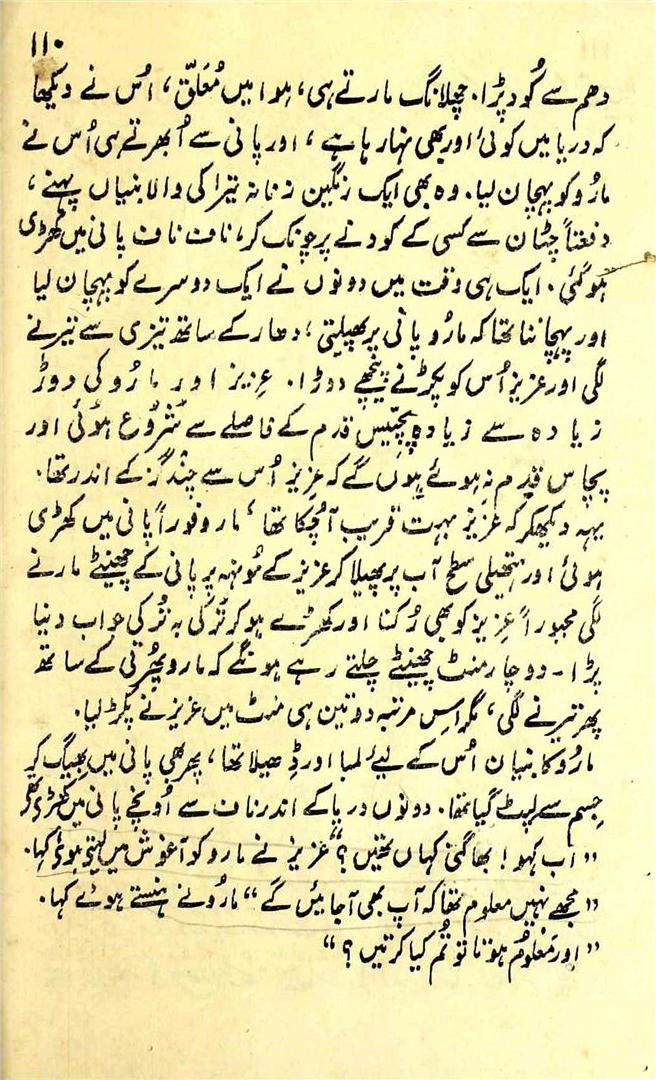 ۱۱۰
دھم سے کُود پڑا. چھلانگ مارتے ہی، ہوا میں مُعَلّق، اُس نے دیکھا
کہ دریا میں کوئی اور بھی نہا رہا ہے، اور پانی سے اُبھرتے ہی اُس نے
مارُو کو پہچان لیا. وہ بھی ایک رنگین زنانہ تیراکی والا بنیان پہنے،
دفعتاً چٹان سے کسی کے کودنے پر چونک کر، ناف ناف پانی میں کھڑی
ہو گئی. ایک ہی وقت میں دونوں نے ایک دوسرے کو پہچان لیا
اور پہچاننا تھا کہ مارُو پانی پر پھیلتی؛ دھار کے ساتھ تیزی سے تیرنے
لگی اور عزیز اُس کو پکڑنے پیچھے دوڑا. عزیز اور مارُو کی دوڑ
زیادہ سے زیادہ پچیس قدم کے فاصلے سے شروع ہوئی اور
پچاس قدم نہ ہوئے ہوں گے کہ عزیز اُس سے چند گز کے اندر تھا.
یہہ دیکھکر کہ عزیز بہت قریب آ چُکا تھا، مارو فوراً پانی میں کھڑی
ہوئی اور ہتھیلی سطح آب پر پھیلا کر عزیز کے مُونہہ پر پانی کے چھینٹے مارنے
لگی مجبوراً عزیز کو بھی رُکنا اور کھڑے ہو کر تُرکی بہ تُرکی جواب دینا
پڑا - دو چار منٹ چھینٹے چلتے رہے ہونگے کہ مارو پھرتی کے ساتھ
پھر تیرنے لگی، مگر اِس مرتبہ دو تین ہی منٹ میں عزیز نے پکڑ لیا.
مارُو کا بنیان اُس کے لیے لمبا اور ڈھیلا تھا، پھر بھی پانی میں بھیگ کر
جِسم سے لپٹ گیا تھا. دونوں دریا کے اندر ناف سے اُونچے پانی میں کھڑی
"اب کہو! بھاگی کہاں تھیں؟" عزیز نے مارو کو آغوش میں لیتے ہوئے کہا.
"مجھے نہیں معلوم تھا کہ آپ بھی آ جائیں گے" مارُو نے ہنستے ہوئے کہا.
"اور معلُوم ہوتا تو تُم کیا کرتیں؟"